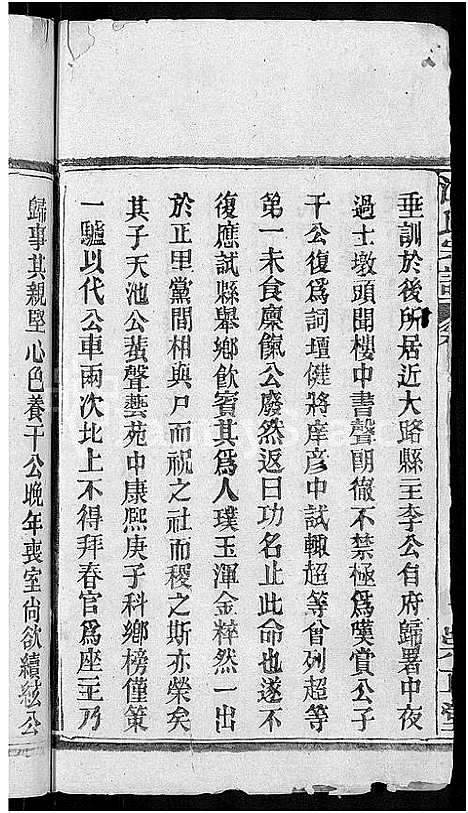 垂訓於後所居近大路縣主李公自府歸署中夜
過士墩頭聞樓中書聲朗徹不禁極爲嘆賞公子
干公復爲詞壇健將庠彥中試輒超等曾列超等
第一未食廩餼公廢然返曰功名止此命也遂不
復應試縣舉鄉飲賓其爲人璞玉渾金粹然一出
於正里黨間相與尸而祝之社而稷之斯亦榮矣
其子天池公蜚聲藝苑中康熙庚子科鄉榜僅策
一驢以代公車兩次北上不得拜春官爲座主乃
歸事其親堅心色養干公晚年喪室尚欲續絃公